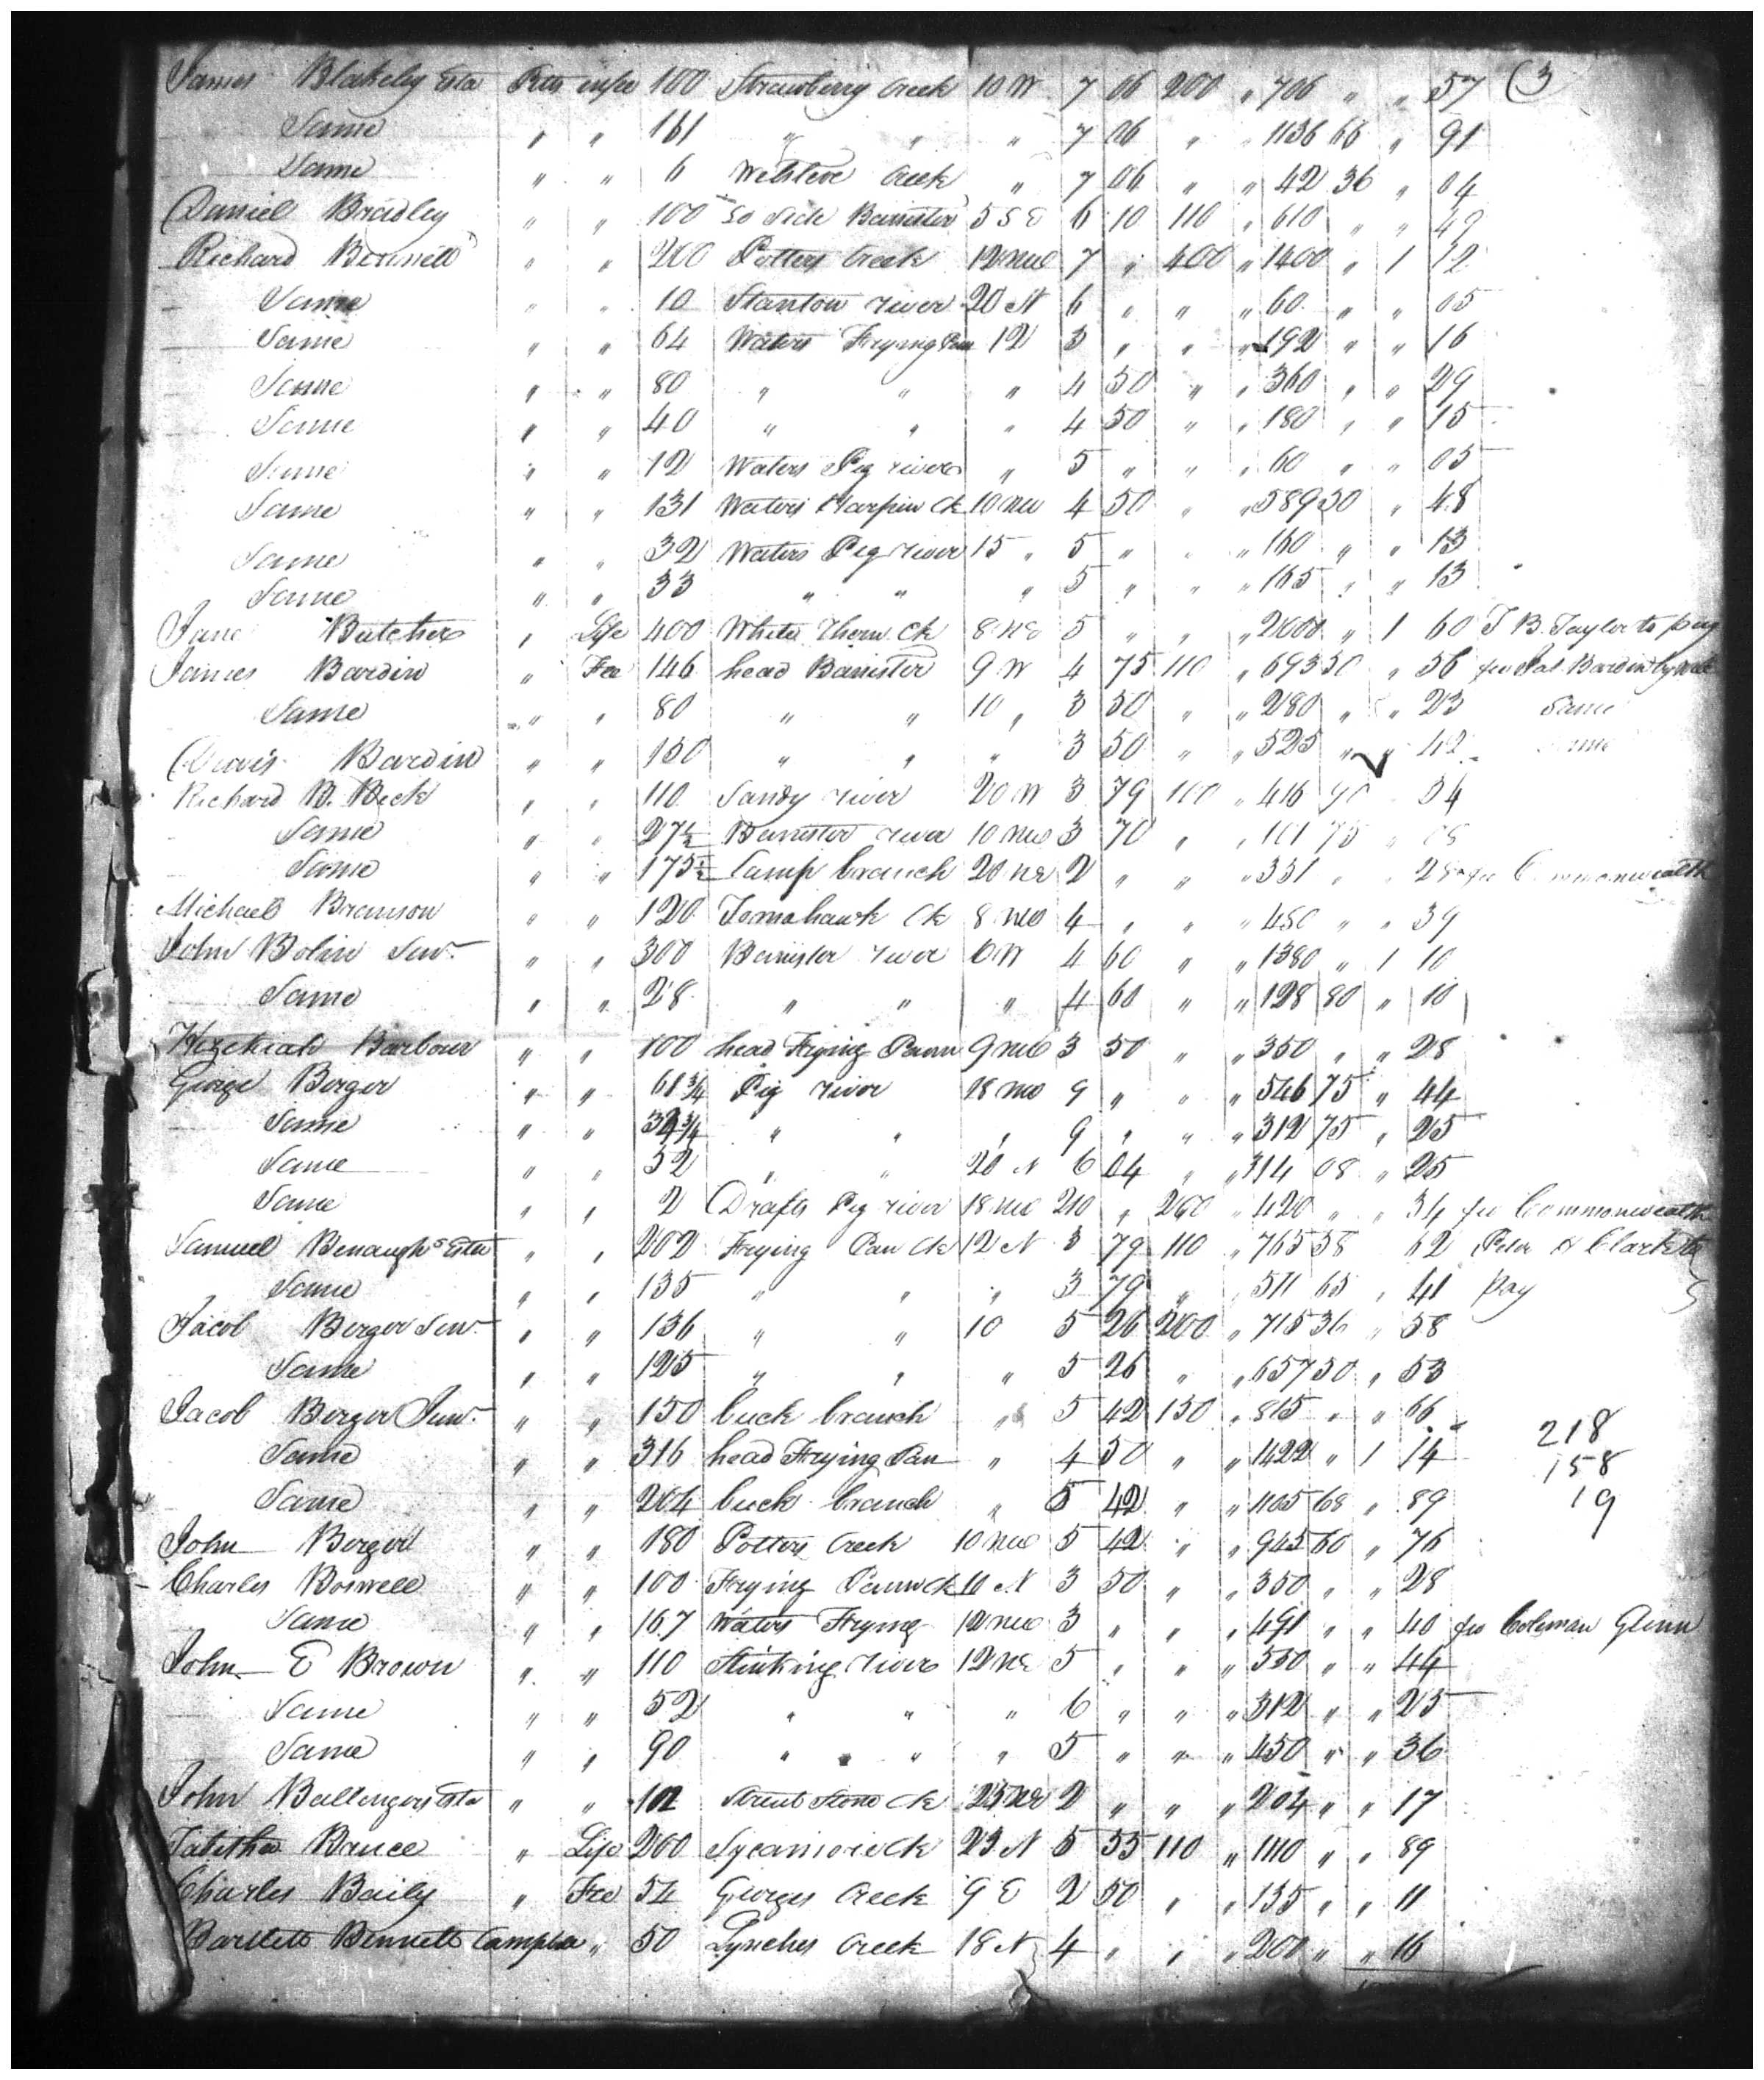 James Blakeley Esta Pitts in fee 100 Strawberry Creek 10 W 7 06 200 " 706 " " 57 (3
Same " " 161 " " " 7 06 " " 1136 66 " 91
Same " " 6 Creek " 7 06 " " 42 36 " 04
Daniel Bradley " " 100 So side Banister 5 SE 6 10 110 " 610 " " 49
Richard Bennett " " 200 Potters Creek 12 NW 7 " 400 " 1400 " 1 12
Same " " 10 Stanton river 20 N 6 " " " 60 " " 05
Same " " 64 Waters Frying Pan 12 3 " " " 192 " " 16
Same " " 80 " " " 4 50 " " 360 " " 29
Same " " 40 " " " 4 50 " " 180 " " 15
Same " " 12 Waters Pig river " 5 " " " 60 " " 05
Same " " 131 Waters Harpin Ck 10 NW 4 50 " " 589 50 " 48
Same " " 32 Waters Pig river 15 " 5 " " " 160 " " 13
Same " " 33 " " " 5 " " " 165 " " 13
Jane Butcher " Life 400 White Thorn Ck 8 NE 5 " " " 2000 " 1 60 T B. Taylor to pay
James Bardin " Fee 146 head Banister 9 W 4 75 110 " 693 50 " 56 fro Bardin by
Same " " 80 " " 10 " 3 50 " " 280 " " 23 Same
Bardin " " 150 " " " 3 50 " " 525 " " 42 Same
Richard B. Beck " " 110 Sandy river 20 W 3 79 110 " 416 90 " 34
Same " " 27½ Banister river 10 NW 3 70 " " 101 75 " 08
Same " " 175½ Camp branch 20 NE 2 " " " 351 " " 28 fro Commonwealth
Michael Branson " " 120 Tomahawk Ck 8 NW 4 " " " 480 " " 39
John Bolin Senr. " " 300 Banister river 6 W 4 60 " " 1380 " 1 10
Same " " 28 " " " 4 60 " " 128 80 " 10
Hezekiah Barbour " " 100 head Frying Pann 9 NW 3 50 " " 350 " " 28
George Berger " " 61¾ Pig river 18 NW 9 " " " 546 75 " 44
Same " " 34¾ " " " 9 " " " 312 75 " 25
Same " " 52 " " 20 N 6 04 " " 314 08 " 25
Same " " 2 Drafts Pig river 18 NW 210 " 260 " 420 " " 34 fro Commonwealth
Samuel Benaughs Esta " " 202 Frying Pan Ck 12 N 3 79 110 " 765 58 " 62 Peter H Clark to
Same " " 135 " " " 3 79 " " 511 65 " 41 pay
Jacob Berger Senr. " " 136 " " 10 5 26 200 " 715 36 " 58
Same " " 125 " " " 5 26 " " 657 50 " 53
Jacob Berger Junr. " " 150 buck branch " 5 42 150 " 815 " " 66 218
Same " " 316 head Frying Pan " 4 50 " " 1422 " 1 14 158
Same " " 204 buck branch " 5 42 " " 1105 68 " 89 19
John Berger " " 180 Potters Creek 10 NW 5 42 " " 945 60 " 76
Charles Boswell " " 100 Frying Pann Ck 10 N 3 50 " " 350 " " 28
Same " " 167 Waters Frying 12 NW 3 " " " 491 " " 40 fro Coleman Glenn
John E Brown " " 110 Stinking river 12 NE 5 " " " 550 " " 44
Same " " 52 " " " 6 " " " 312 " " 25
Same " " 90 " " " 5 " " " 450 " " 36
John Ballengers Esta " " 102 Straitstone Ck 25 NE 2 " " " 204 " " 17
Tabitha Bruce " Life 200 Sycamore Ck 23 N 5 55 110 " 1110 " " 89
Charles Baily " Fee 54 Georges Creek 9 E 2 50 " " 135 " " 11
Bartlett Bennett Campbell " 50 Lynches Creek 18 N 4 " " " 200 " " 16